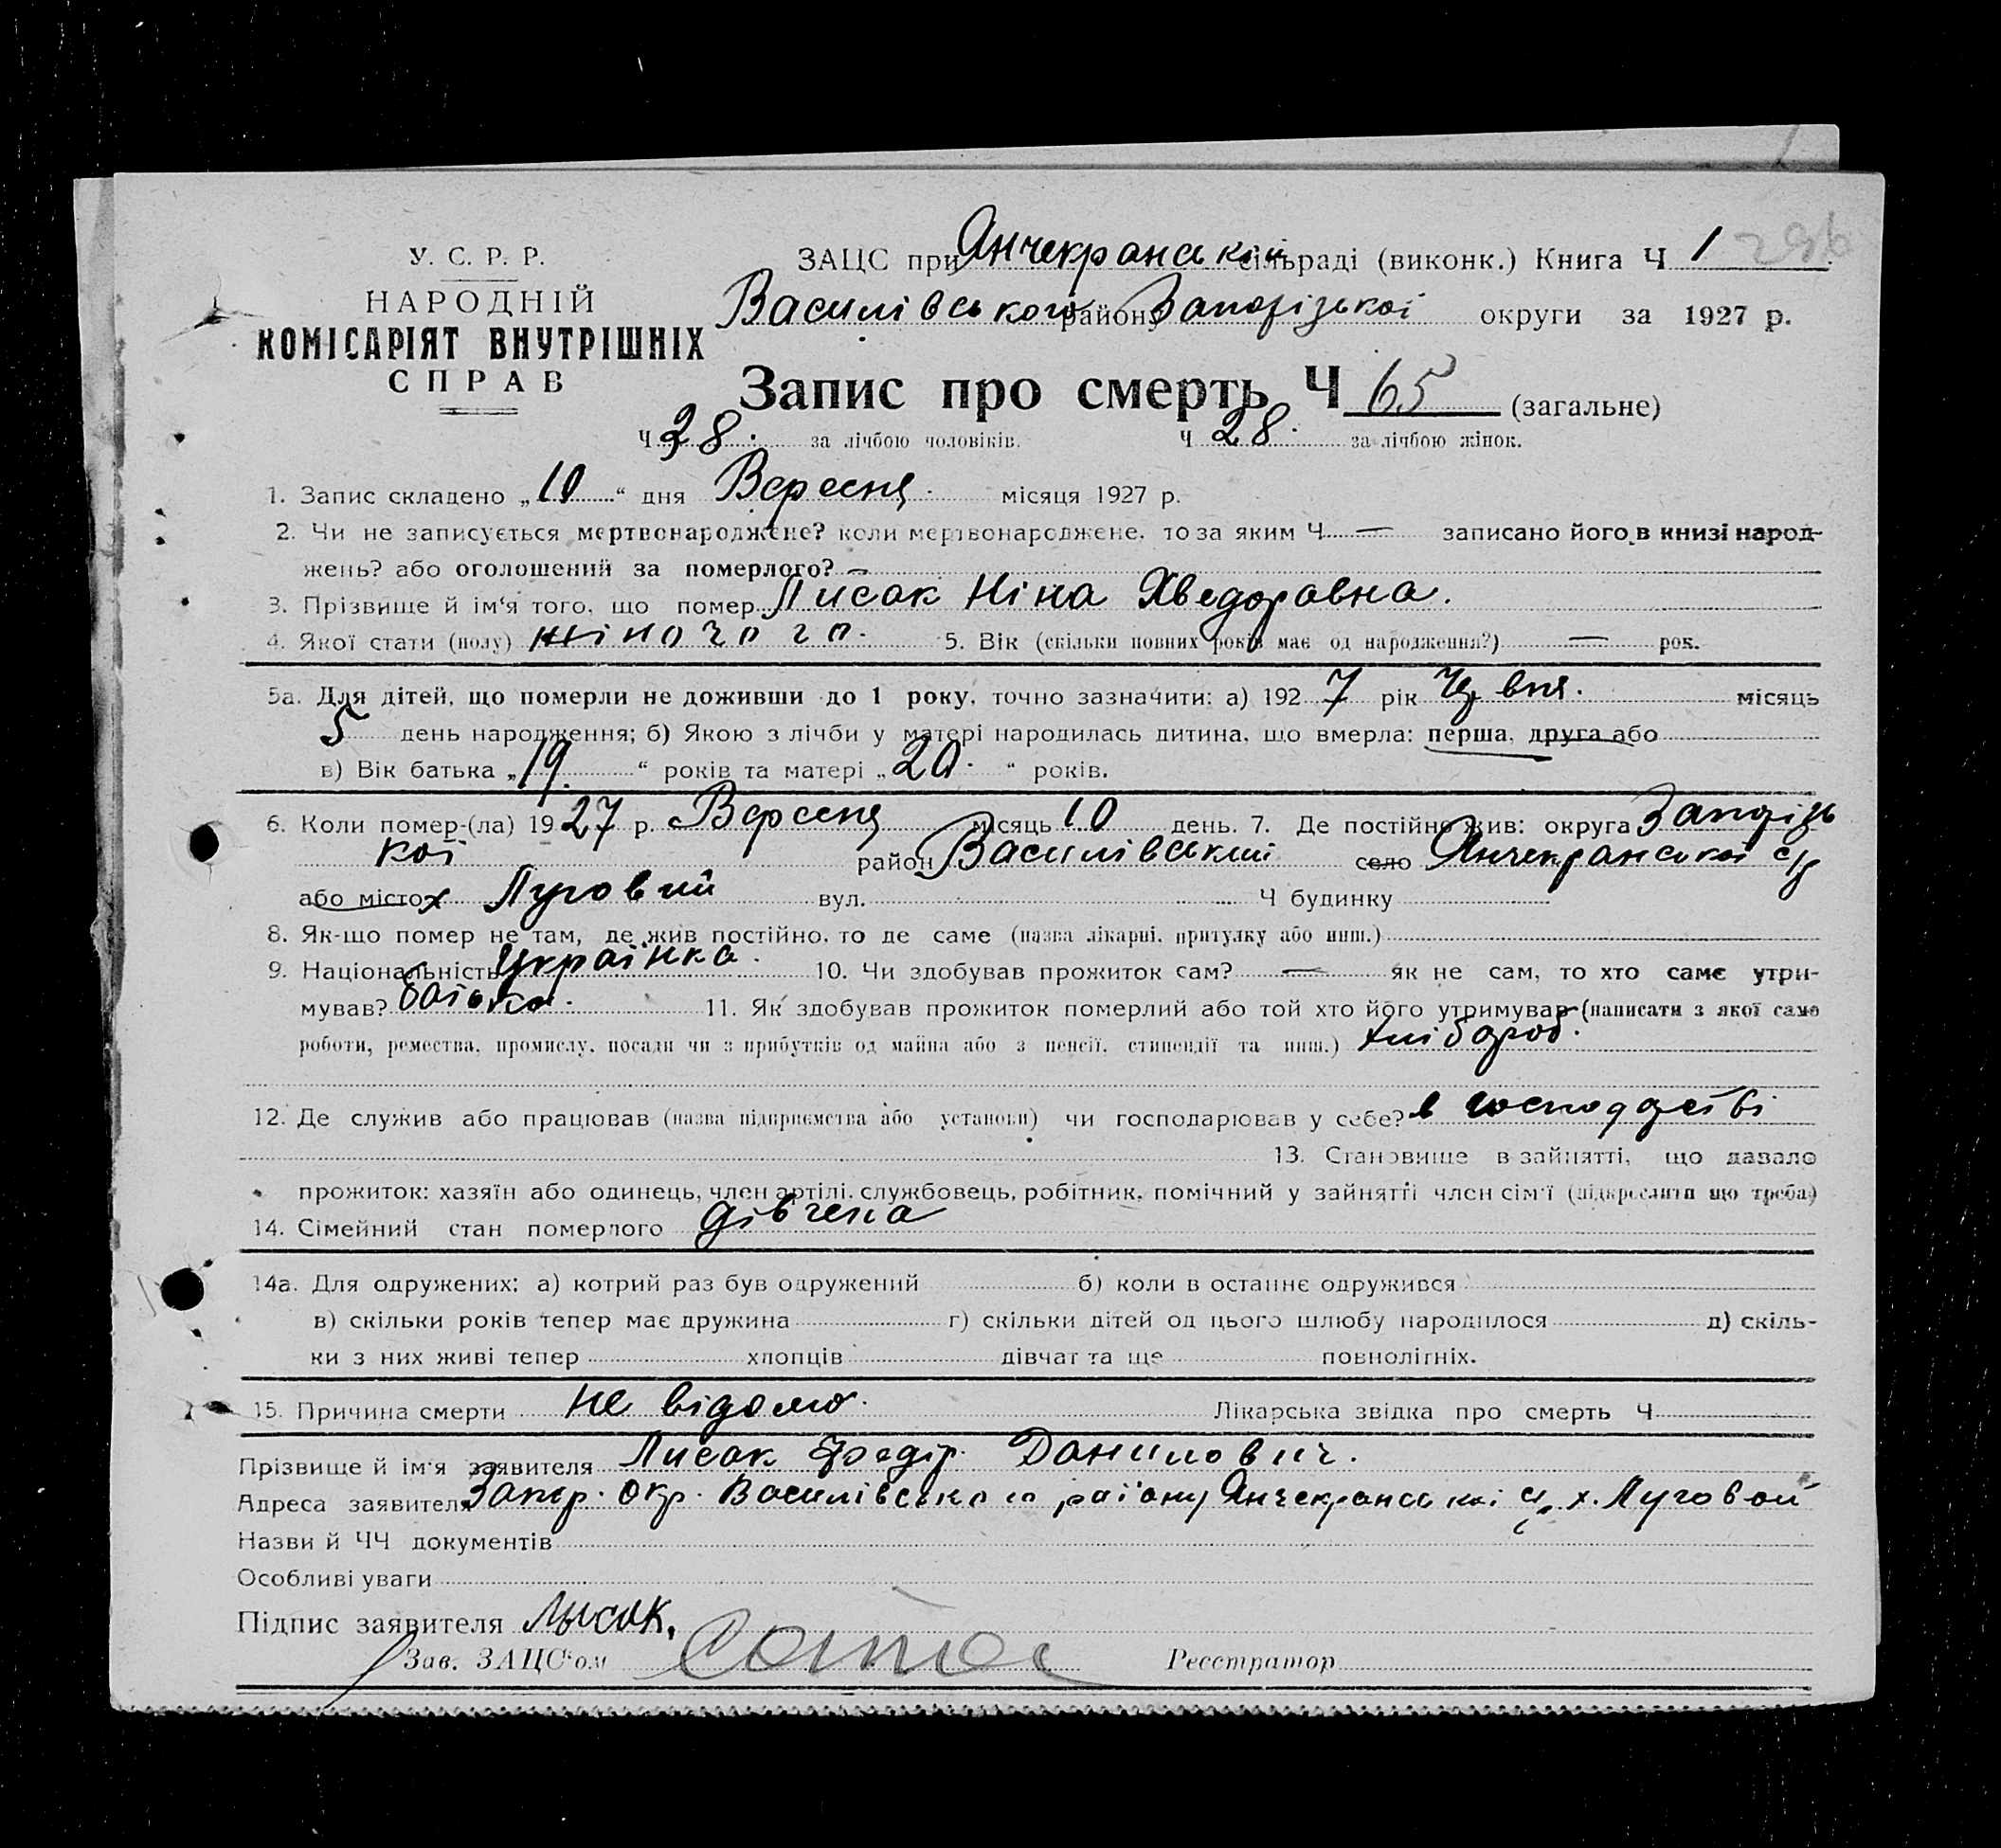 У. С. Р. Р.
НАРОДНІЙ
КОМІСАРІЯТ ВНУТРІШНІХ
СПРАВ
ЗАЦС при Янчекранській сільраді (виконк.) Книга Ч 1 296
Василівського району Запорізької округи за 1927 р.
Запис про смерть Ч 65 (загальне)
Ч 38. за лічбою чоловіків. Ч 28. за лічбою жінок.
1. Запис складено „10“ дня Вересня місяця 1927 р.
2. Чи не записується мертвонароджене? коли мертвонароджене, то за яким Ч — записано його в книзі народ-
жень? або оголошений за померлого? —
3. Прізвище й ім‘я того, що помер Лисак Ніна Хведоровна.
4. Якої стати (полу) жіночого. 5. Вік (скільки повних років має од народження?) — рок.
5а. Для дітей, що померли не доживши до 1 року, точно зазначити: а) 1927 рік Червня. місяць
5 день народження; б) Якою з лічби у матері народилась дитина, що вмерла: перша, друга або
в) Вік батька „19.“ років та матері „20.“ років.
6. Коли помер-(ла) 1927 р. Вересня місяць 10 день. 7. Де постійно жив: округа Запорізь
кої район Василівський село Янчекранської с/р
або місто х Луговий вул. Ч будинку
8. Як-що помер не там, де жив постійно, то де саме (назва лікарні, притулку або инш.)
9. Національність Українка. 10. Чи здобував прожиток сам? — як не сам, то хто саме утри-
мував? батько. 11. Як здобував прожиток померлий або той хто його утримував (написати з якої само
роботи, ремества, промислу, посади чи з прибутків од майна або з пенсії, стипендії та инш.) хлібороб.
12. Де служив або працював (назва підприємства або установи) чи господарював у себе? в господарстві
13. Становище в зайнятті, що давало
прожиток: хазяїн або одинець, член артілі, службовець, робітник, помічний у зайнятті член сім‘ї (підкреслити що треба)
14. Сімейний стан померлого дівчена
14а. Для одружених: а) котрий раз був одружений б) коли в останнє одружився
в) скільки років тепер має дружина г) скільки дітей од цього шлюбу народилося д) скіль-
ки з них живі тепер хлопців дівчат та ще повнолітніх.
15. Причина смерти не відомо. Лікарська звідка про смерть Ч
Прізвище й ім‘я заявителя Лисак Федір Данилович.
Адреса заявителя Запор. Окр. Василівського району Янчекранської с/р х. Луговой
Назви й ЧЧ документів
Особливі уваги
Підпис заявителя Лысак,
Зав. ЗАЦС‘ом
Реєстратор